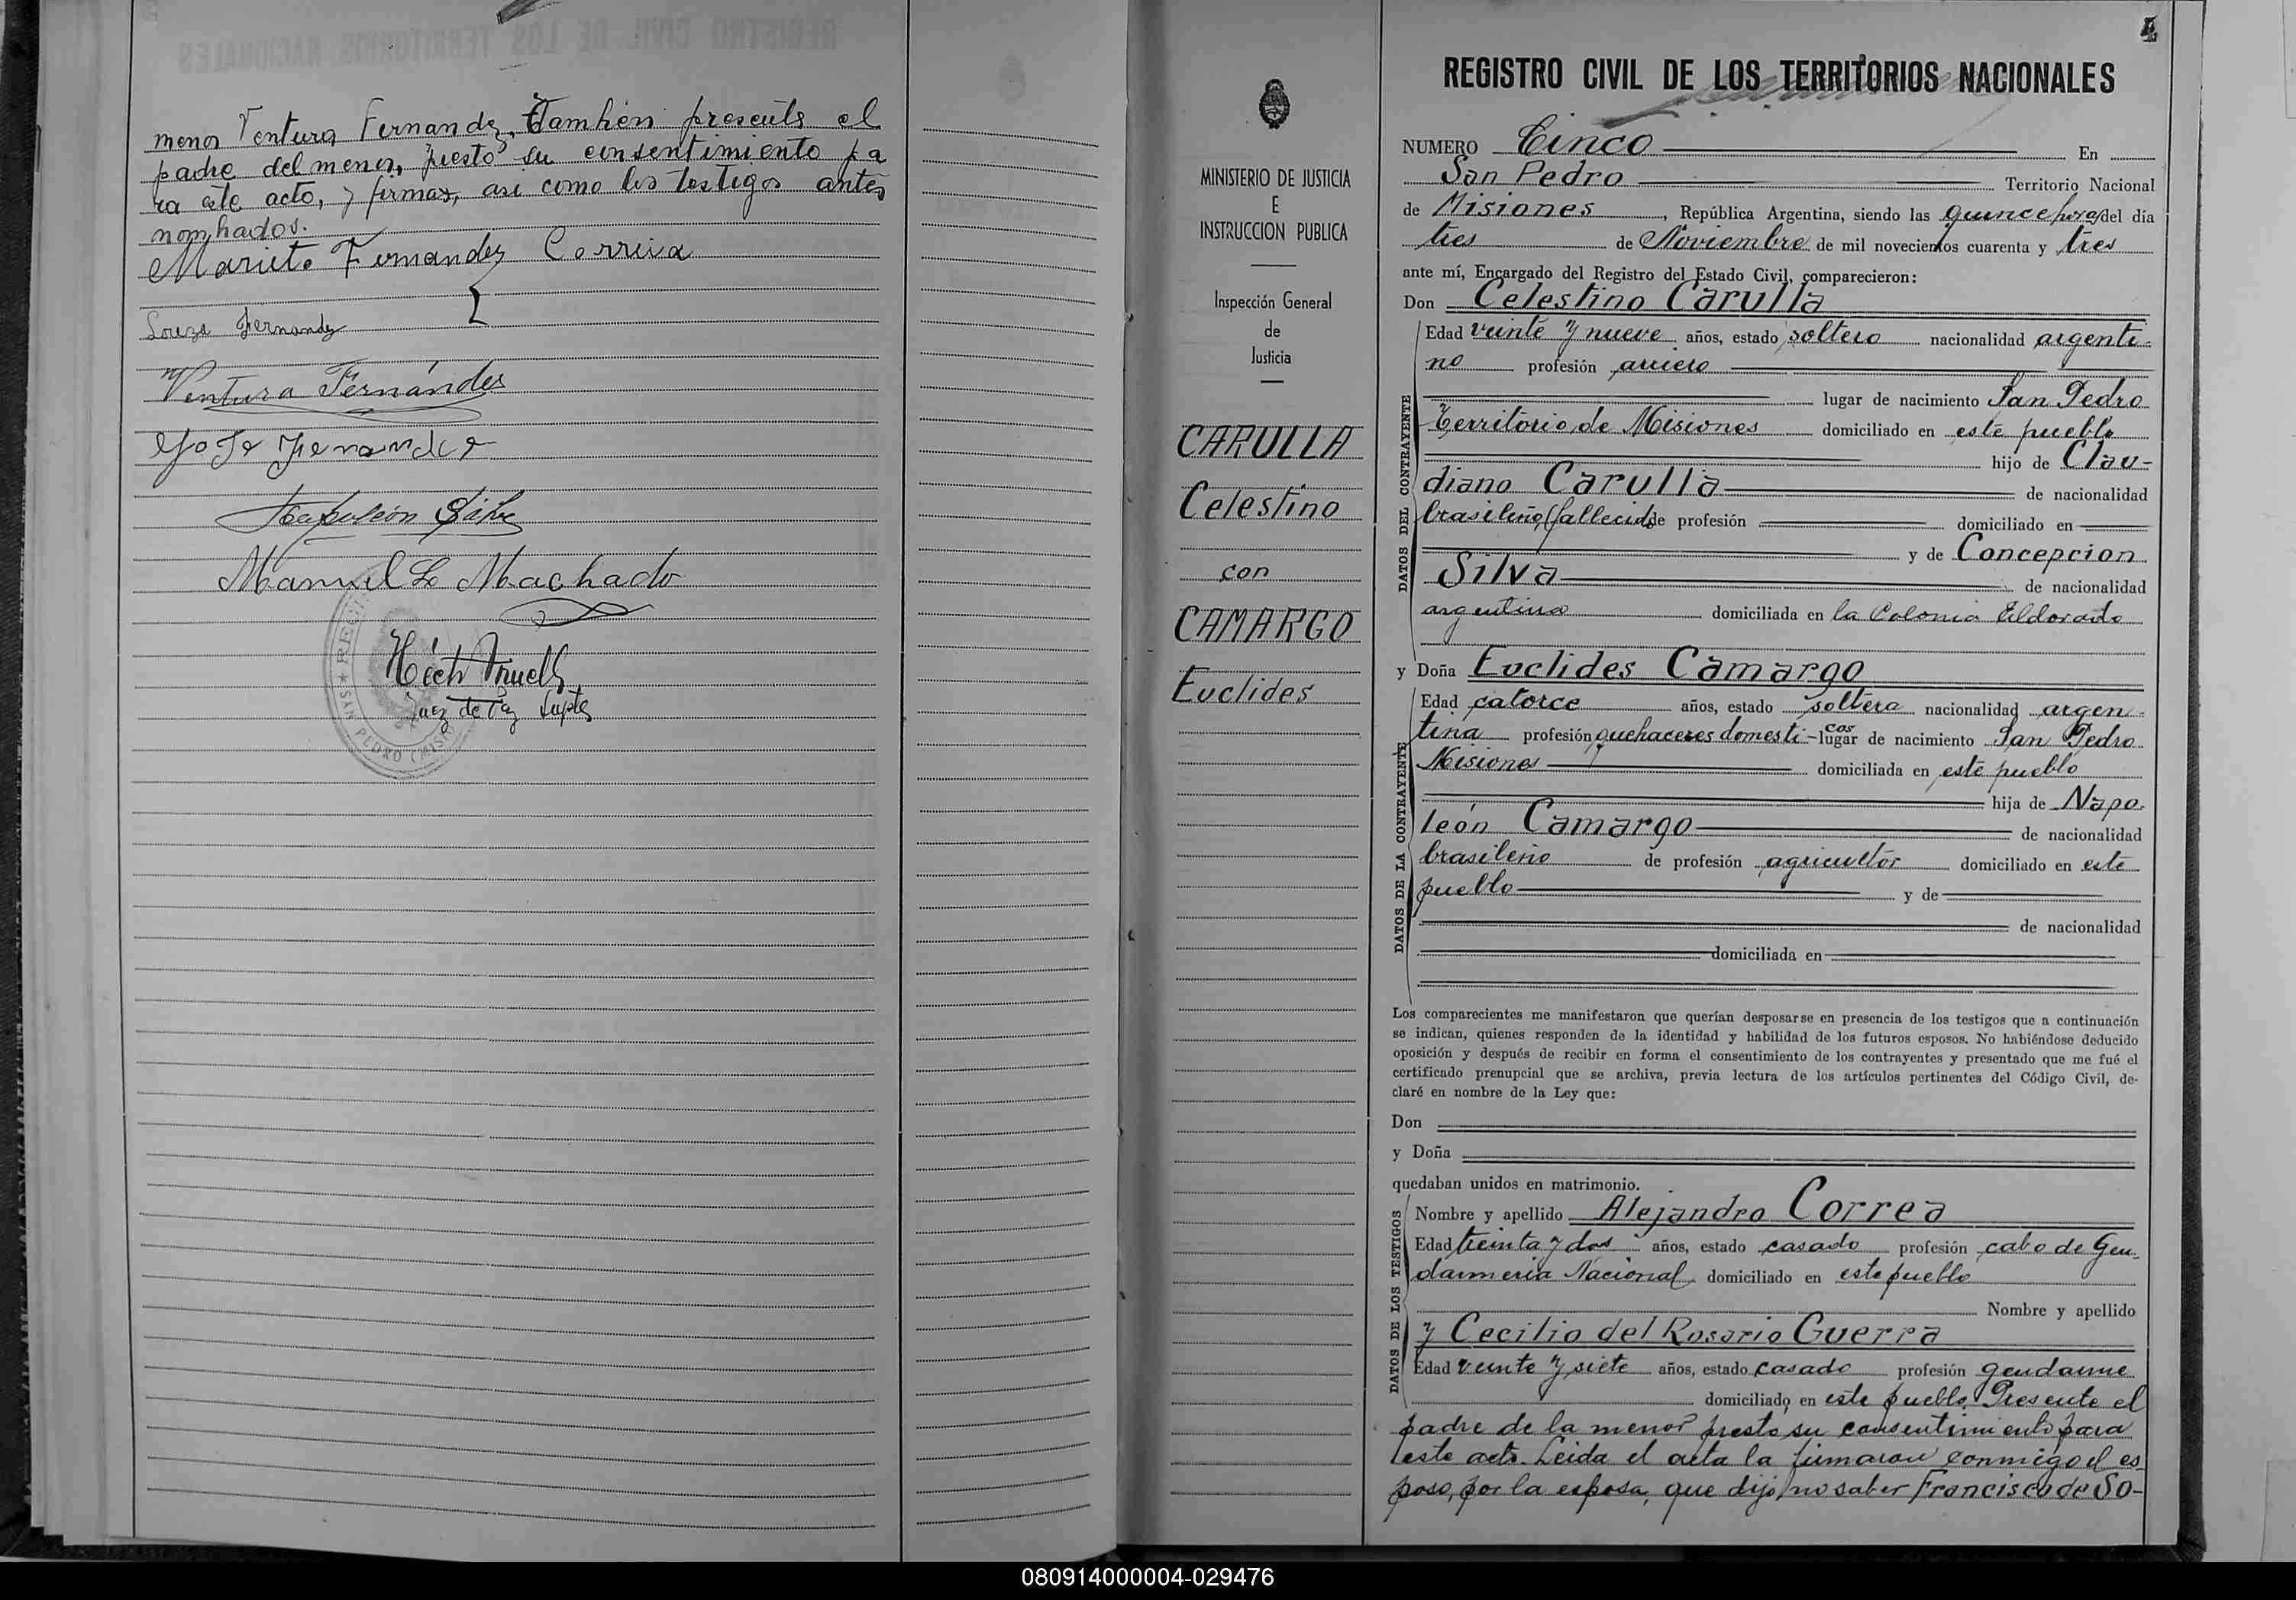 menor Ventura Fernandez, Tambien presente el
padre del menor, prestó su consentimiento pa
ra este acto, y firmas, asi como los testigos antes
nombrados.
Marieta Fernandez Correia
Souza Fernandez
Ventura Fernandes
Napoleón Silva
Manuel L Machado
Juez de Paz Supte
SAN PEDRO (MISI
MINISTERIO DE JUSTICIA
E
INSTRUCCION PUBLICA
Inspección General
de
Justicia
CARULLA
Celestino
con
CAMARGO
Euclides
4
REGISTRO CIVIL DE LOS TERRITORIOS NACIONALES
NUMERO Cinco En
San Pedro Territorio Nacional
de Misiones, República Argentina, siendo las quince horas del día
tres de Noviembre de mil novecientos cuarenta y tres
ante mí, Encargado del Registro del Estado Civil, comparecieron:
Don Celestino Carulla
DATOS DEL CONTRAYENTE
Edad veinte y nueve años, estado soltero nacionalidad argenti-
no profesión arriero
lugar de nacimiento San Pedro
Territorio de Misiones domiciliado en este pueblo
hijo de Clau-
diano Carulla de nacionalidad
brasileño (fallecido) de profesión domiciliado en
y de Concepcion
Silva de nacionalidad
argentina domiciliada en la Colonia Eldorado
y Doña Euclides Camargo
DATOS DE LA CONTRAYENTE
Edad catorce años, estado soltera nacionalidad argen-
tina profesión quehaceres domesti-cos lugar de nacimiento San Pedro
Misiones domiciliada en este pueblo
hija de Napo-
león Camargo de nacionalidad
brasileño de profesión agricultor domiciliado en este
pueblo y de
de nacionalidad
domiciliada en
Los comparecientes me manifestaron que querían desposarse en presencia de los testigos que a continuación
se indican, quienes responden de la identidad y habilidad de los futuros esposos. No habiéndose deducido
oposición y después de recibir en forma el consentimiento de los contrayentes y presentado que me fué el
certificado prenupcial que se archiva, previa lectura de los artículos pertinentes del Código Civil, de-
claré en nombre de la Ley que:
Don
y Doña
quedaban unidos en matrimonio.
DATOS DE LOS TESTIGOS
Nombre y apellido Alejandro Correa
Edad treinta y dos años, estado casado profesión cabo de Gen-
darmeria Nacional domiciliado en este pueblo
Nombre y apellido
y Cecilio del Rosario Guerra
Edad veinte y siete años, estado casado profesión gendarme
domiciliado en este pueblo. Presente el
padre de la menor presta su consentimiento para
este acto. Leida el acta la firmaron conmigo el es-
poso, por la esposa, que dijo no saber Francisco de So-
080914000004-029476